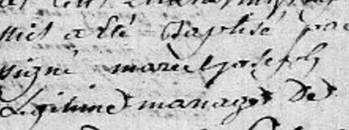 a été Baptisé par
signé marie joseph
Legitime mariage De